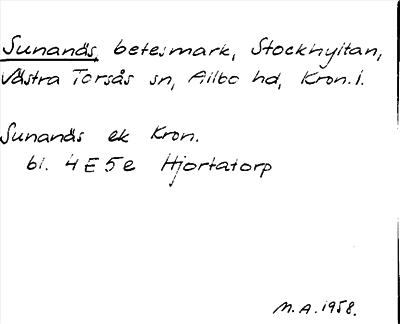 Sunanäs, betesmark, Stocknyltan,
Västra Torsås sn, Allbo hd, Kron. l.
Sunanäs ek Kron.
bl. 4E5e Hjortatorp
M.A. 1958.